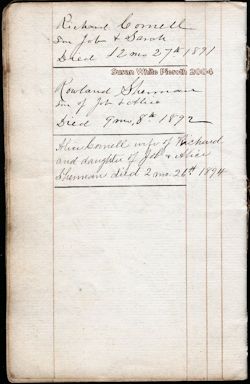 Richard Cornell
Son Job & Sarah
Died 12 mo 27th 1891
Susan White Pieroth 2004
Rowland Sherman
Son of Job & Alice
Died 9 mo, 8th 1892
Alice Cornell wife of Richard
and daughter of Job & Alice
Sherman died 2 mo. 26th 1894